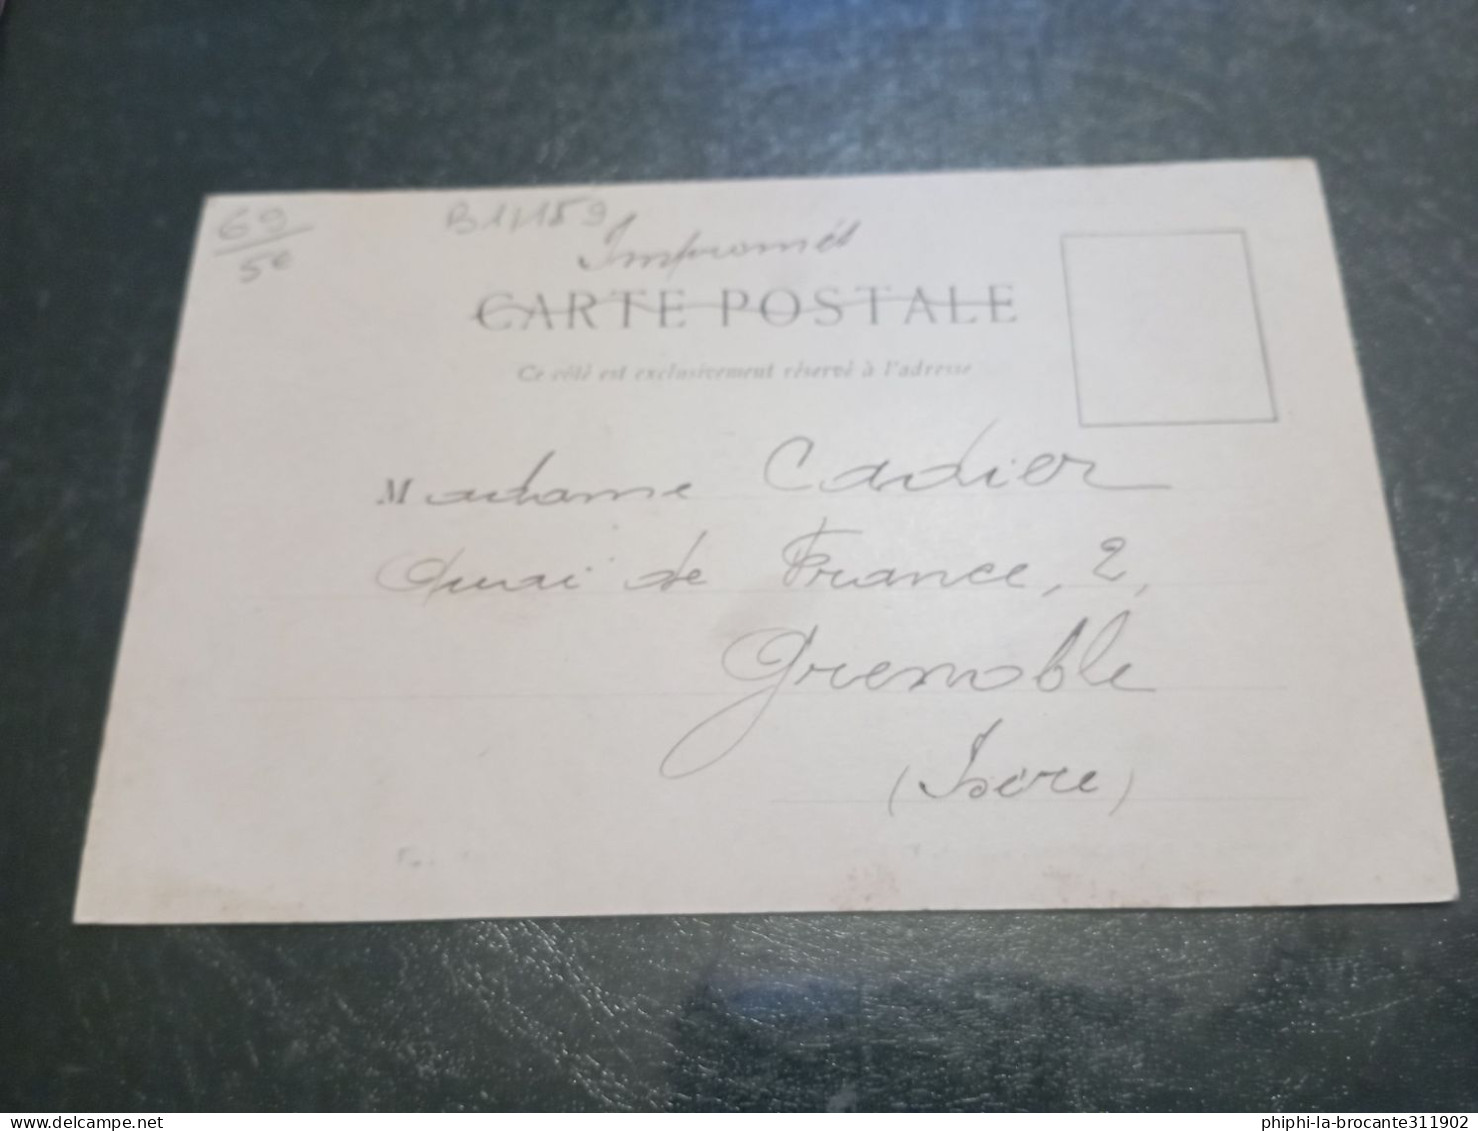 69 B11/159
5€
Imprimés
CARTE POSTALE
Ce côté est exclusivement réservé à l'adresse
Madame Cadier
Quai de France, 2,
Grenoble
(Isère)
phiphi-la-brocante311902